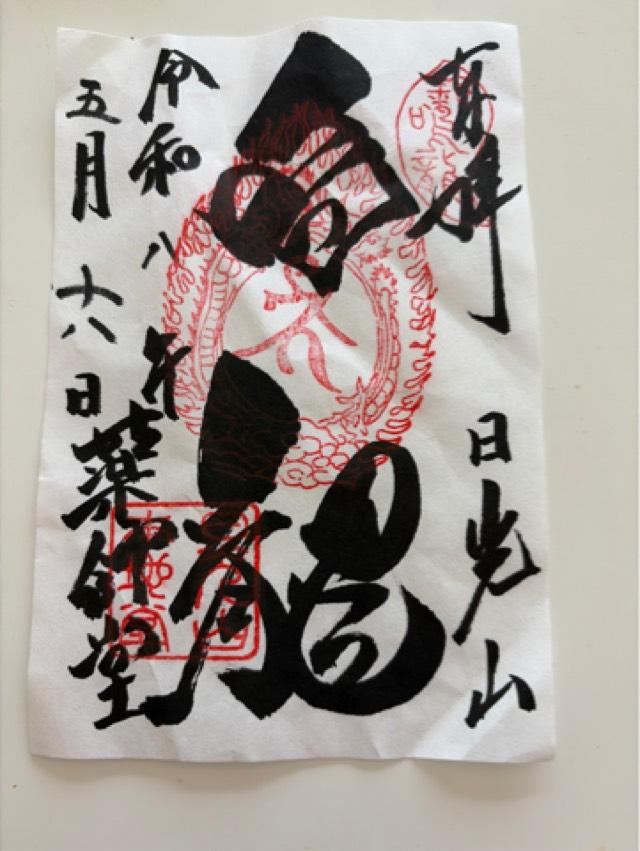 奉拝
日光山
鳴龍
令和八年
五月十八日
薬師堂